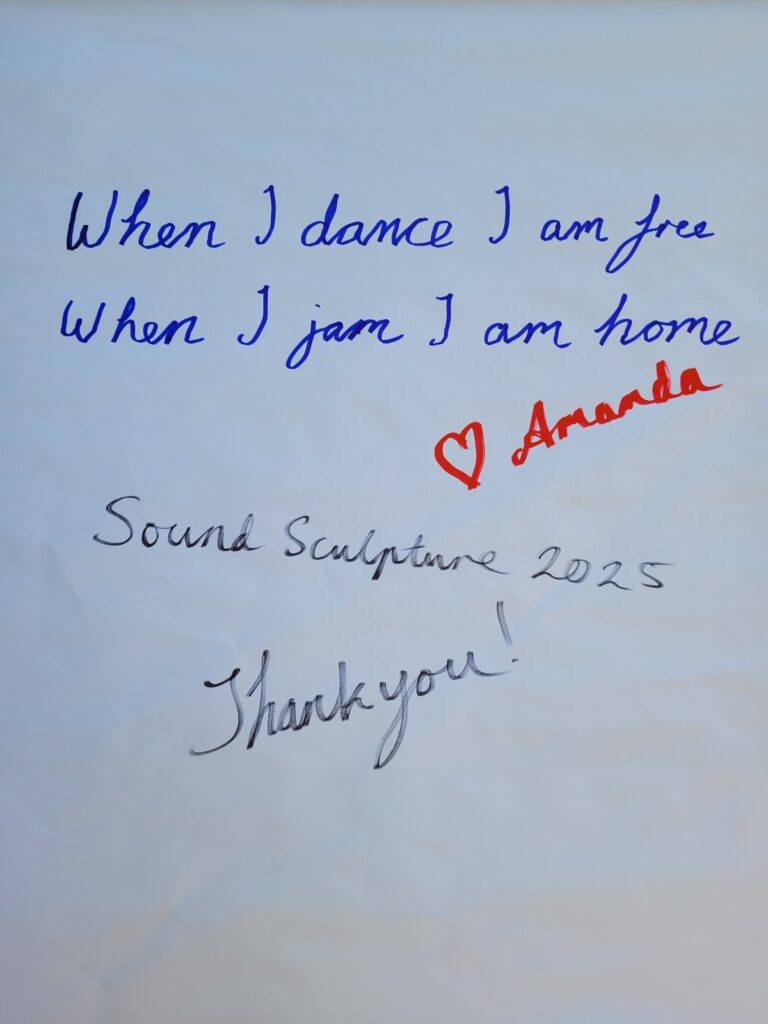 When I dance I am free
When I jam I am home
♡ Amanda
Sound Sculpture 2025
Thank you!